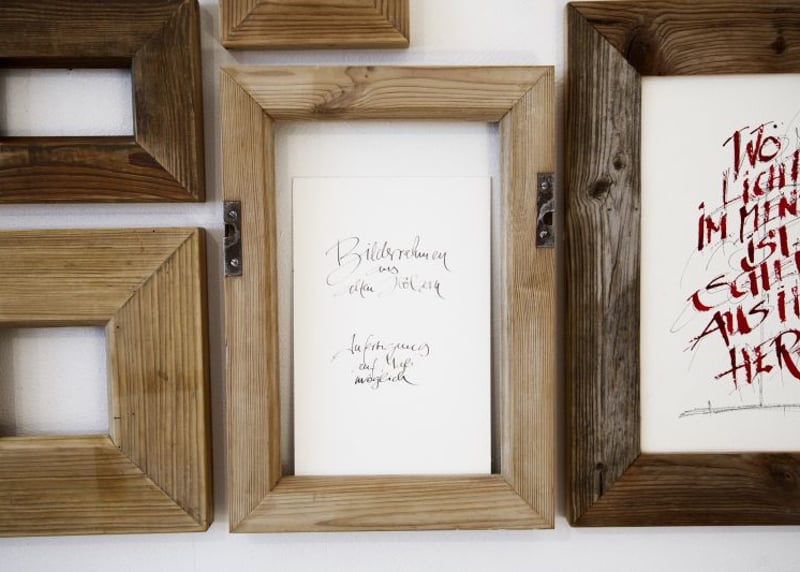 Bilderrahmen
aus
alten Hölzern
Anfertigung
auf Maß
möglich
WO
LICHT
IM MEN
IST
SCHEI
AUS IH
HER